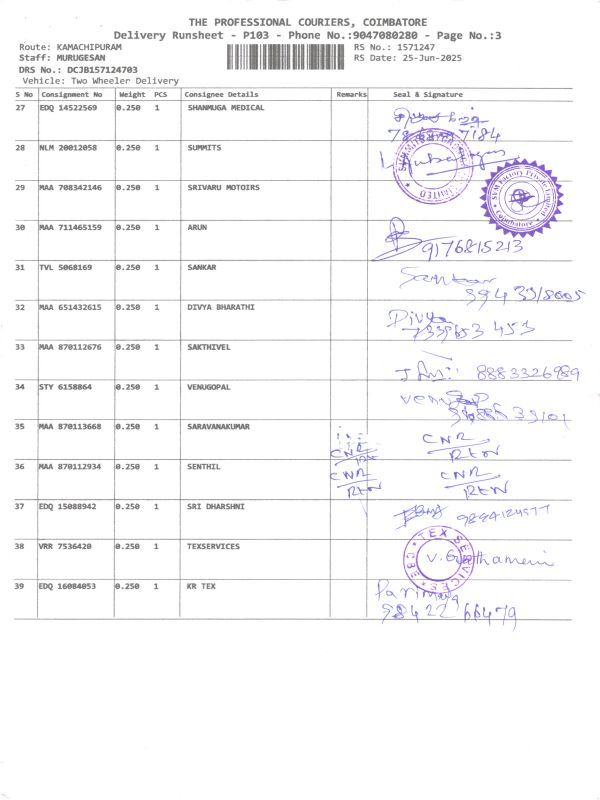 THE PROFESSIONAL COURIERS, COIMBATORE
Delivery Runsheet - P103 - Phone No.:9047080280 - Page No.:3
Route: KAMACHIPURAM RS No.: 1571247
Staff: MURUGESAN RS Date: 25-Jun-2025
DRS No.: DCJB157124703
Vehicle: Two Wheeler Delivery
S No Consignment No Weight PCS Consignee Details Remarks Seal & Signature
27 EDQ 14522569 0.250 1 SHANMUGA MEDICAL
28 NLM 20012058 0.250 1 SUMMITS
29 MAA 708342146 0.250 1 SRIVARU MOTOIRS
SVM Factory Private Limited Coimbatore
30 MAA 711465159 0.250 1 ARUN 9176815213
31 TVL 5068169 0.250 1 SANKAR Sankar
32 MAA 651432615 0.250 1 DIVYA BHARATHI Divya
33 MAA 870112676 0.250 1 SAKTHIVEL 8883326989
34 STY 6158864 0.250 1 VENUGOPAL
35 MAA 870113668 0.250 1 SARAVANAKUMAR CNR CNR
RTN RTN
36 MAA 870112934 0.250 1 SENTHIL CNR CNR
RTN RTN
37 EDQ 15088942 0.250 1 SRI DHARSHNI
38 VRR 7536420 0.250 1 TEXSERVICES TEX SERVICES CBE
39 EDQ 16084053 0.250 1 KR TEX
98422 66479